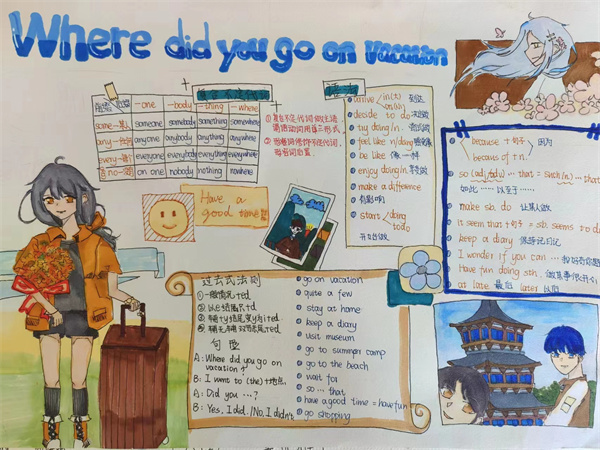 Where did you go on vacation
-one -body -thing -where
some- someone somebody something somewhere
any- anyone anybody anything anywhere
every- everyone everybody everything everywhere
no- on one nobody nothing nowhere
Have a
good time
arrive in(大)
decide to do
try doing/n.
feel like n/doing
be like 像一样
enjoy doing
make a difference
有影响
start doing
to do
开始做
because + 句子 因为
becaus of + n.
so (adj/adv) … that =
such (n) … that
如此……以至于……
make sb. do 让某人做
it seem that + 句子 = sb. seems to do
keep a diary
I wonder if you can …
Have fun doing sth.
at late 最后 later 以后
过去式法则
句型
A: Where did you go on
vacation?
B: I want to (the) + 地点.
A: Did you …?
B: Yes, I did. / No, I didn't
go on vacation
quite a few
stay at home
keep a diary
visit museum
go to summon camp
go to the beach
wait for
so … that
have a good time = have fun
go shopping